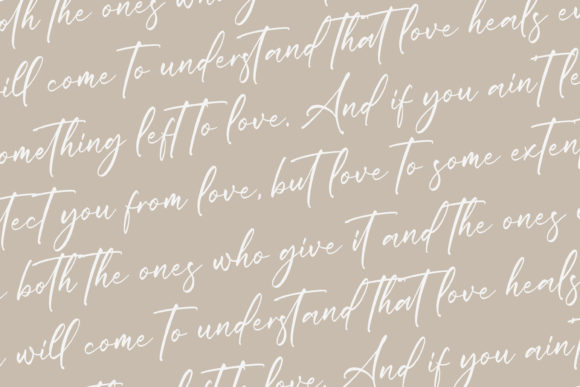 oth the ones who
ill come to understand that love heals ev
omething left to love. And if you ain't le
tect you from love, but love to some exten
both the ones who give it and the ones
will come to understand that love heals
left to love. And if you ain't